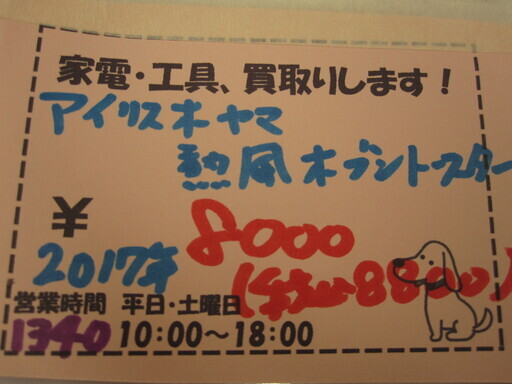 家電・工具、買取りします！
アイリスオヤマ
熱風オーブントースター
￥8000
2017年 (税込8800)
営業時間 平日・土曜日
1340 10:00～18:00